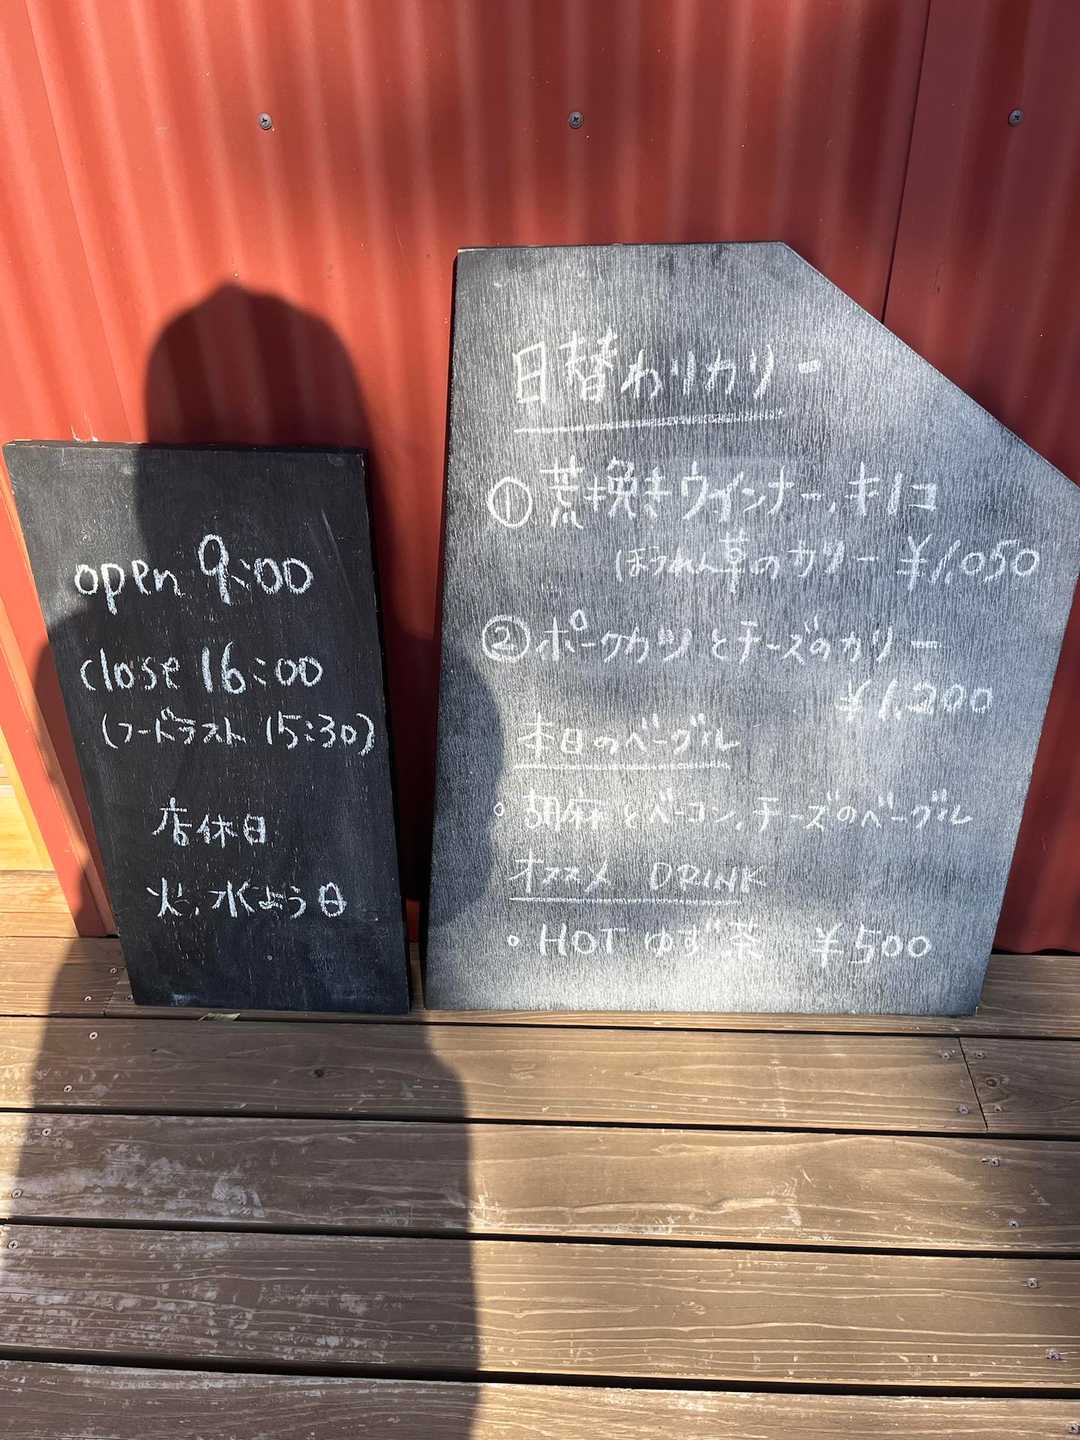 open 9:00
close 16:00
(フードラスト 15:30)
店休日
火、水よう日
日替わりカリー
① 荒挽きウインナー、キノコ
ほうれん草のカリー ¥1,050
② ポークカツとチーズのカリー
¥1,200
本日のベーグル
・胡麻とベーコン、チーズのベーグル
オススメ DRINK
・HOT ゆず茶 ¥500